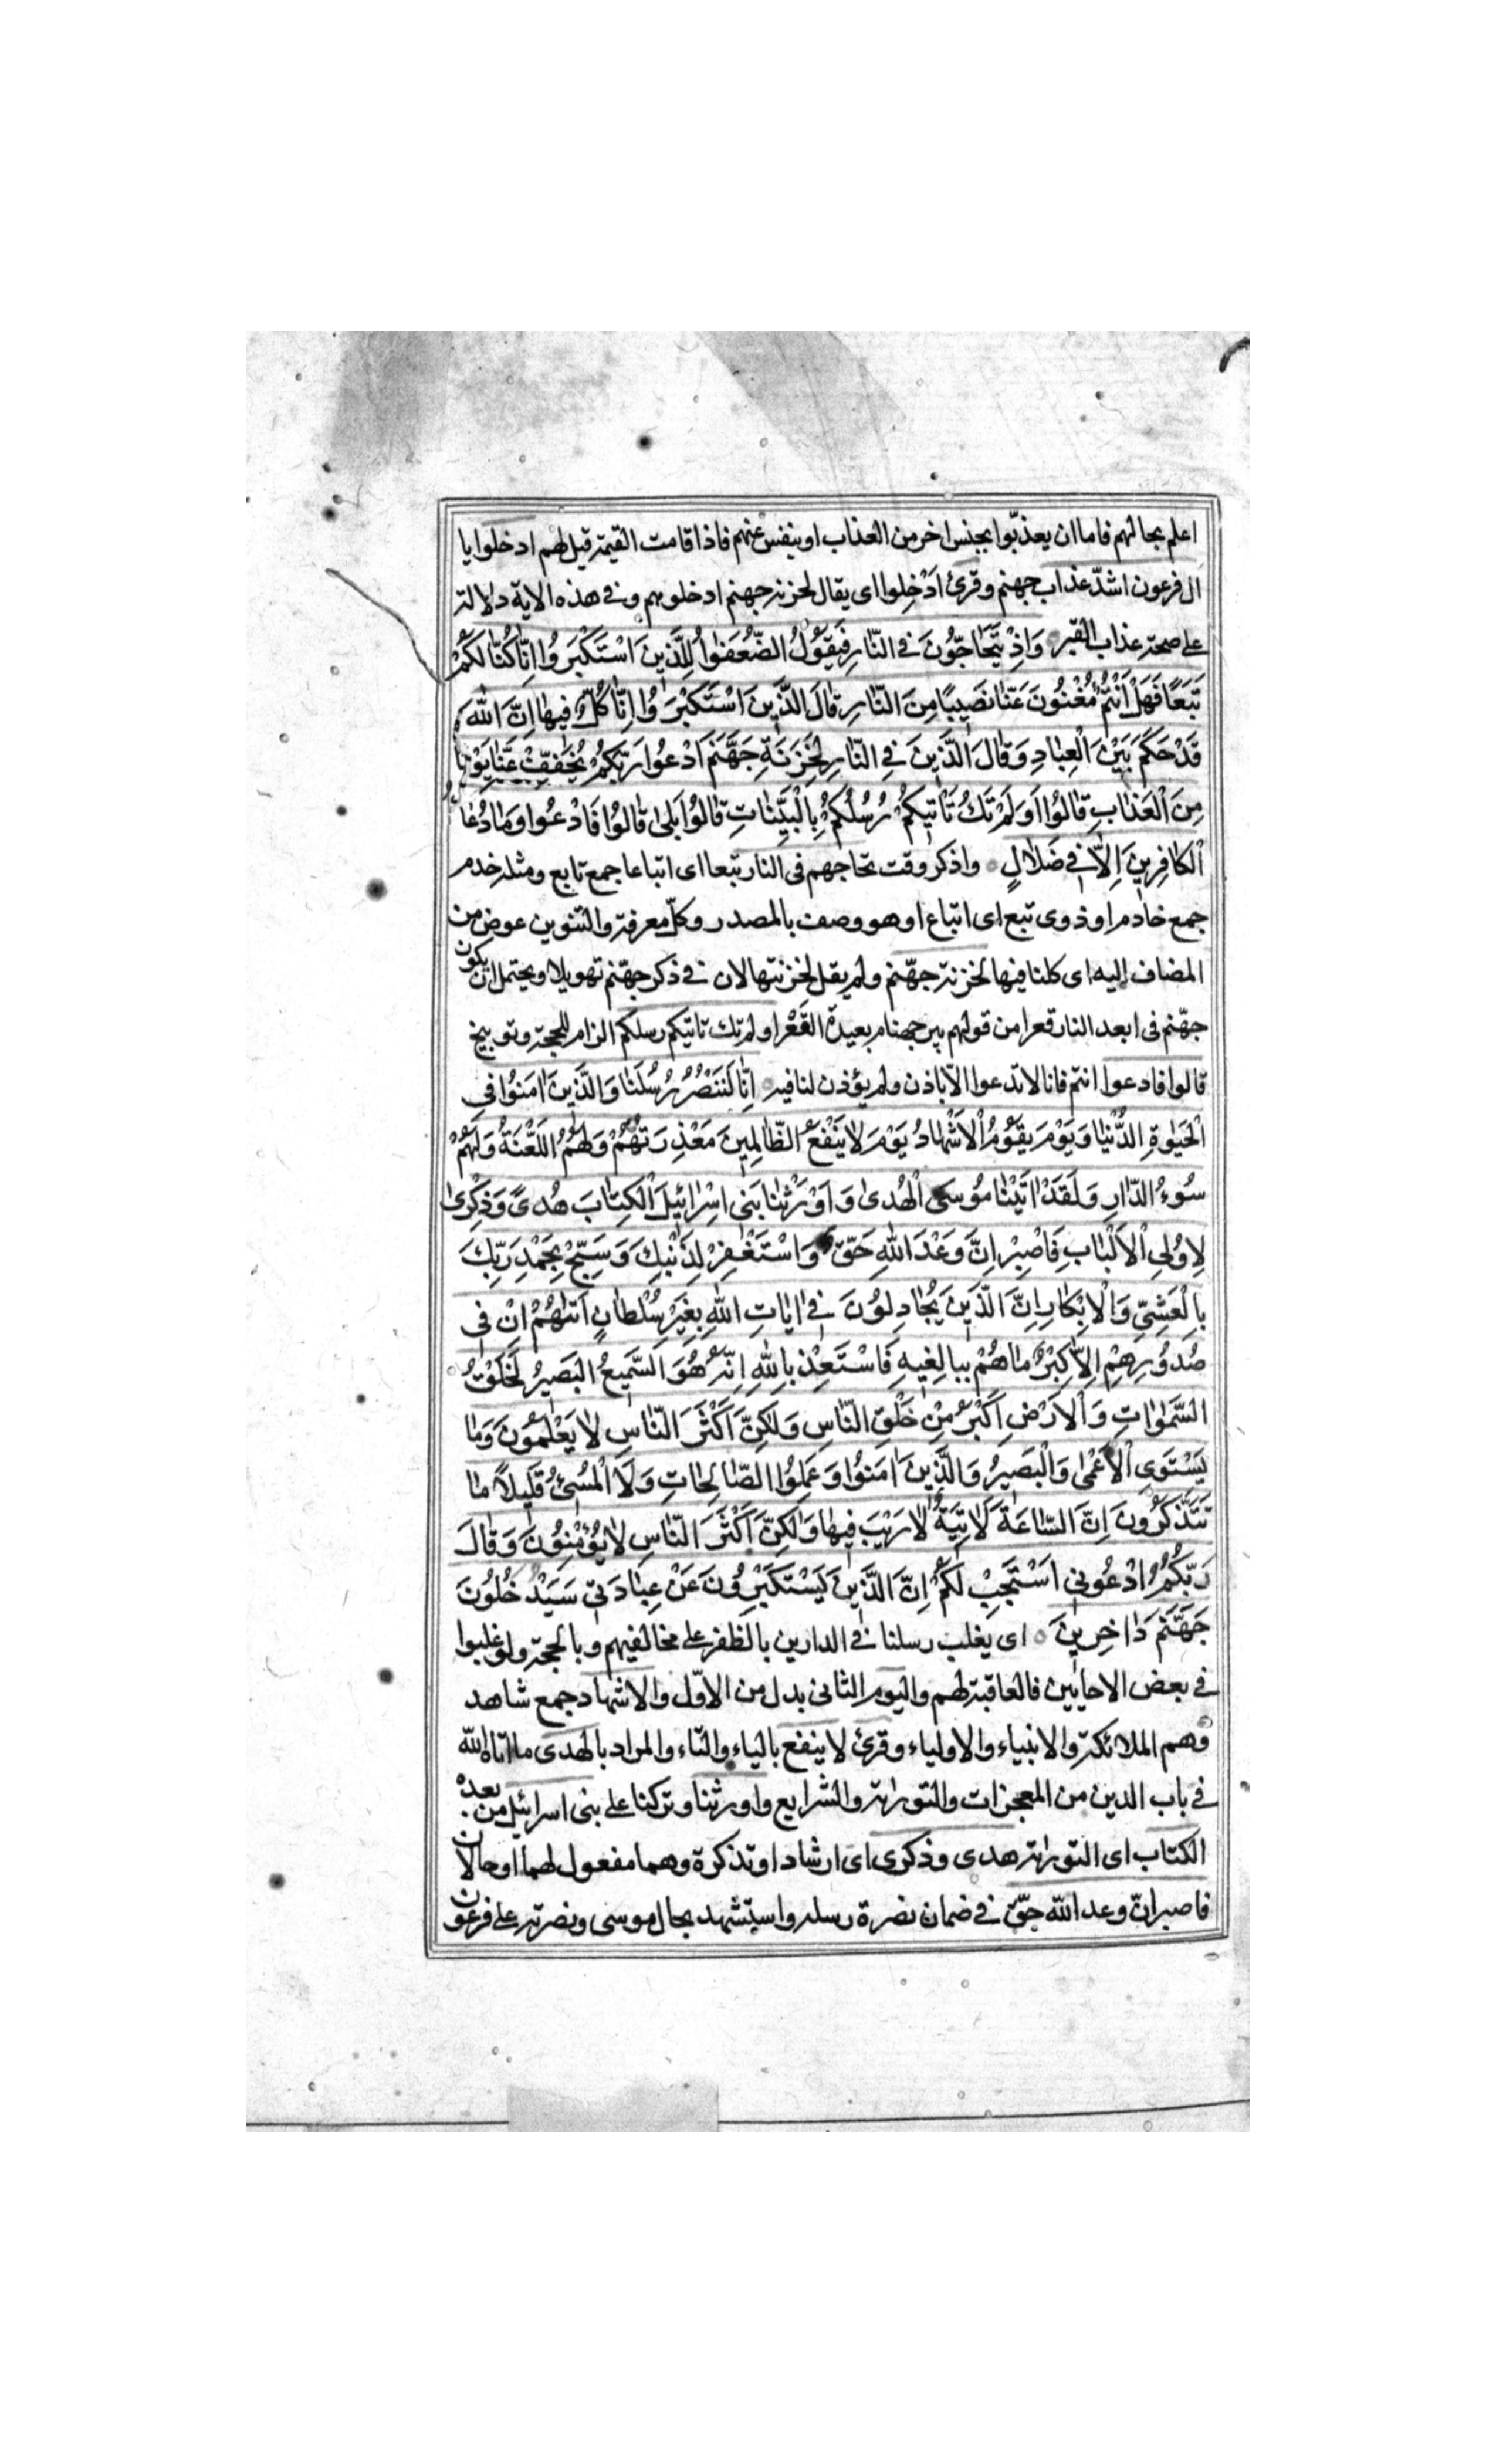 اعلم بحالهم فاما ان يعذبّوا بجنس اخر من العذاب او ينفس عنهم فاذا قامت القيمة قيل لهم ادخلوا يا
ال فرعون اشدّ عذاب جهنم وقرئ اَدْخِلوا اى يقال لخزنة جهنم ادخلوهم وفى هذه الاية دلالة
على صحة عذاب القبر وَاِذْ يَتَحَاجّوُنَ فِى النّارِ فَيَقوُلُ الضُّعَفٰوُا لِلَّذينَ اسْتَكْبَرَوُا اِنّٰا كُنّٰا لَكُمْ
تَبَعًا فَهَلْ اَنْتُمْ مُغْنُونَ عَنّٰا نَصيبًا مِنَ النّٰارِ قٰالَ الَّذينَ اسْتَكْبَرَوُا اِنّٰا كُلٌّ فيهٰا اِنَّ اللهَ
قَدْ حَكَمَ بَيْنَ الْعِبٰادِ وَقٰالَ الَّذينَ فِى النّٰارِ لِخَزَنَةِ جَهَنَّمَ ادْعُوا رَبَّكُمْ يُخَفِّفْ عَنّٰا يَوْمًا
مِنَ الْعَذٰابِ قٰالُوا اَوَلَمْ تَكُ تَاْتيكُمْ رُسُلُكُمْ بِالْبَيِّنٰاتِ قٰالُوا بَلىٰ قٰالُوا فَادْعُوا وَمٰا دُعٰاءُ
الْكٰافِرينَ اِلاّٰ فى ضَلاٰلٍ واذكر وقت تحاجهم فى النار تبعا اى اتباعا جمع تابع ومثله خدم
جمع خادم او ذوى تبع اى اتباع او هو وصف بالمصدر وكلّ معرفة والتنوين عوض من
المضاف اليه اى كلنا فيها لخزنة جهّنم ولم يقل لخزنتها لان فى ذكر جهّنم تهويلا ويحتمل ان يكون
جهّنم فى ابعد النار قعرا من قولهم بير جهنام بعيدة القَعْر او لم تك تاتيكم رسلكم الزام للحجة وتوبيخ
قالوا فادعوا انتم فانا لا ندعوا الاّ باذن ولم يؤذن لنا فيه اِنّٰا لَنَنْصُرُ رُسُلَنٰا وَالَّذينَ اٰمَنُوا فِى
الْحَيٰوةِ الدُّنْيٰا وَيَوْمَ يَقوُمُ الْاَشْهٰادُ يَوْمَ لاٰ يَنْفَعُ الظّٰالِمينَ مَعْذِرَتُهُمْ وَلَهُمُ اللَّعْنَةُ وَلَهُمْ
سُوءُ الدّٰارِ وَلَقَدْ اٰتَيْنٰا مُوسَى الْهُدىٰ وَاَوْرَثْنٰا بَنى اِسْرٰائيلَ الْكِتٰابَ هُدىً وَذِكْرىٰ
لِاُولِى الْاَلْبٰابِ فَاصْبِرْ اِنَّ وَعْدَ اللهِ حَقّ وَاسْتَغْفِرْ لِذَنْبِكَ وَسَبِّحْ بِحَمْدِ رَبِّكَ
بِالْعَشِىِّ وَالْاِبْكٰارِ اِنَّ الَّذينَ يُجٰادِلوُنَ فى اٰيٰاتِ اللهِ بِغَيْرِ سُلْطٰانٍ اَتٰهُمْ اِنْ فى
صُدُورِهِمْ اِلاّٰ كِبْرٌ مٰا هُمْ بِبٰالِغيهِ فَاسْتَعِذْ بِاللهِ اِنَّهُ هُوَ السَّميعُ الْبَصيرُ لَخَلْقُ
السَّمٰوٰاتِ وَالْاَرْضِ اَكْبَرُ مِنْ خَلْقِ النّٰاسِ وَلٰكِنَّ اَكْثَرَ النّٰاسِ لاٰ يَعْلَمُونَ وَمٰا
يَسْتَوِى الْاَعْمٰى وَالْبَصيرُ وَالَّذينَ اٰمَنُوا وَعَمِلُوا الصّٰالِحٰاتِ وَلاَ الْمُسئُ قَليلاً مٰا
تَتَذَكَّرُونَ اِنَّ السّٰاعَةَ لَاٰتِيَةٌ لاٰ رَيْبَ فيهٰا وَلٰكِنَّ اَكْثَرَ النّٰاسِ لاٰ يُؤْمِنُونَ وَقٰالَ
رَبُّكُمُ ادْعُونى اَسْتَجِبْ لَكُمْ اِنَّ الَّذينَ يَسْتَكْبِرُونَ عَنْ عِبٰادَتى سَيَدْخُلُونَ
جَهَنَّمَ دٰاخِرينَ اى يغلب رسلنا فى الدارين بالظفر على مخالفيهم وبالحجة ولو غلبوا
فى بعض الاحايين فالعاقبة لهم واليوم الثانى بدل من الاوّل والاشهاد جمع شاهد
وهم الملائكة والانبياء والاولياء وقرئ لا ينفع بالياء والتاء والمراد بالهدى ما اتاه الله
فى باب الدين من المعجزات والتوراة والشرايع واورثنا وتركنا على بنى اسرائيل من بعده
الكتاب اى التوراة هدى وذكرى اى ارشادا وتذكرة وهما مفعول لهما او حالان
فاصبر انّ وعد الله حقّ فى ضمان نصرة رسله واستشهد بحال موسى ونصرته على فرعون